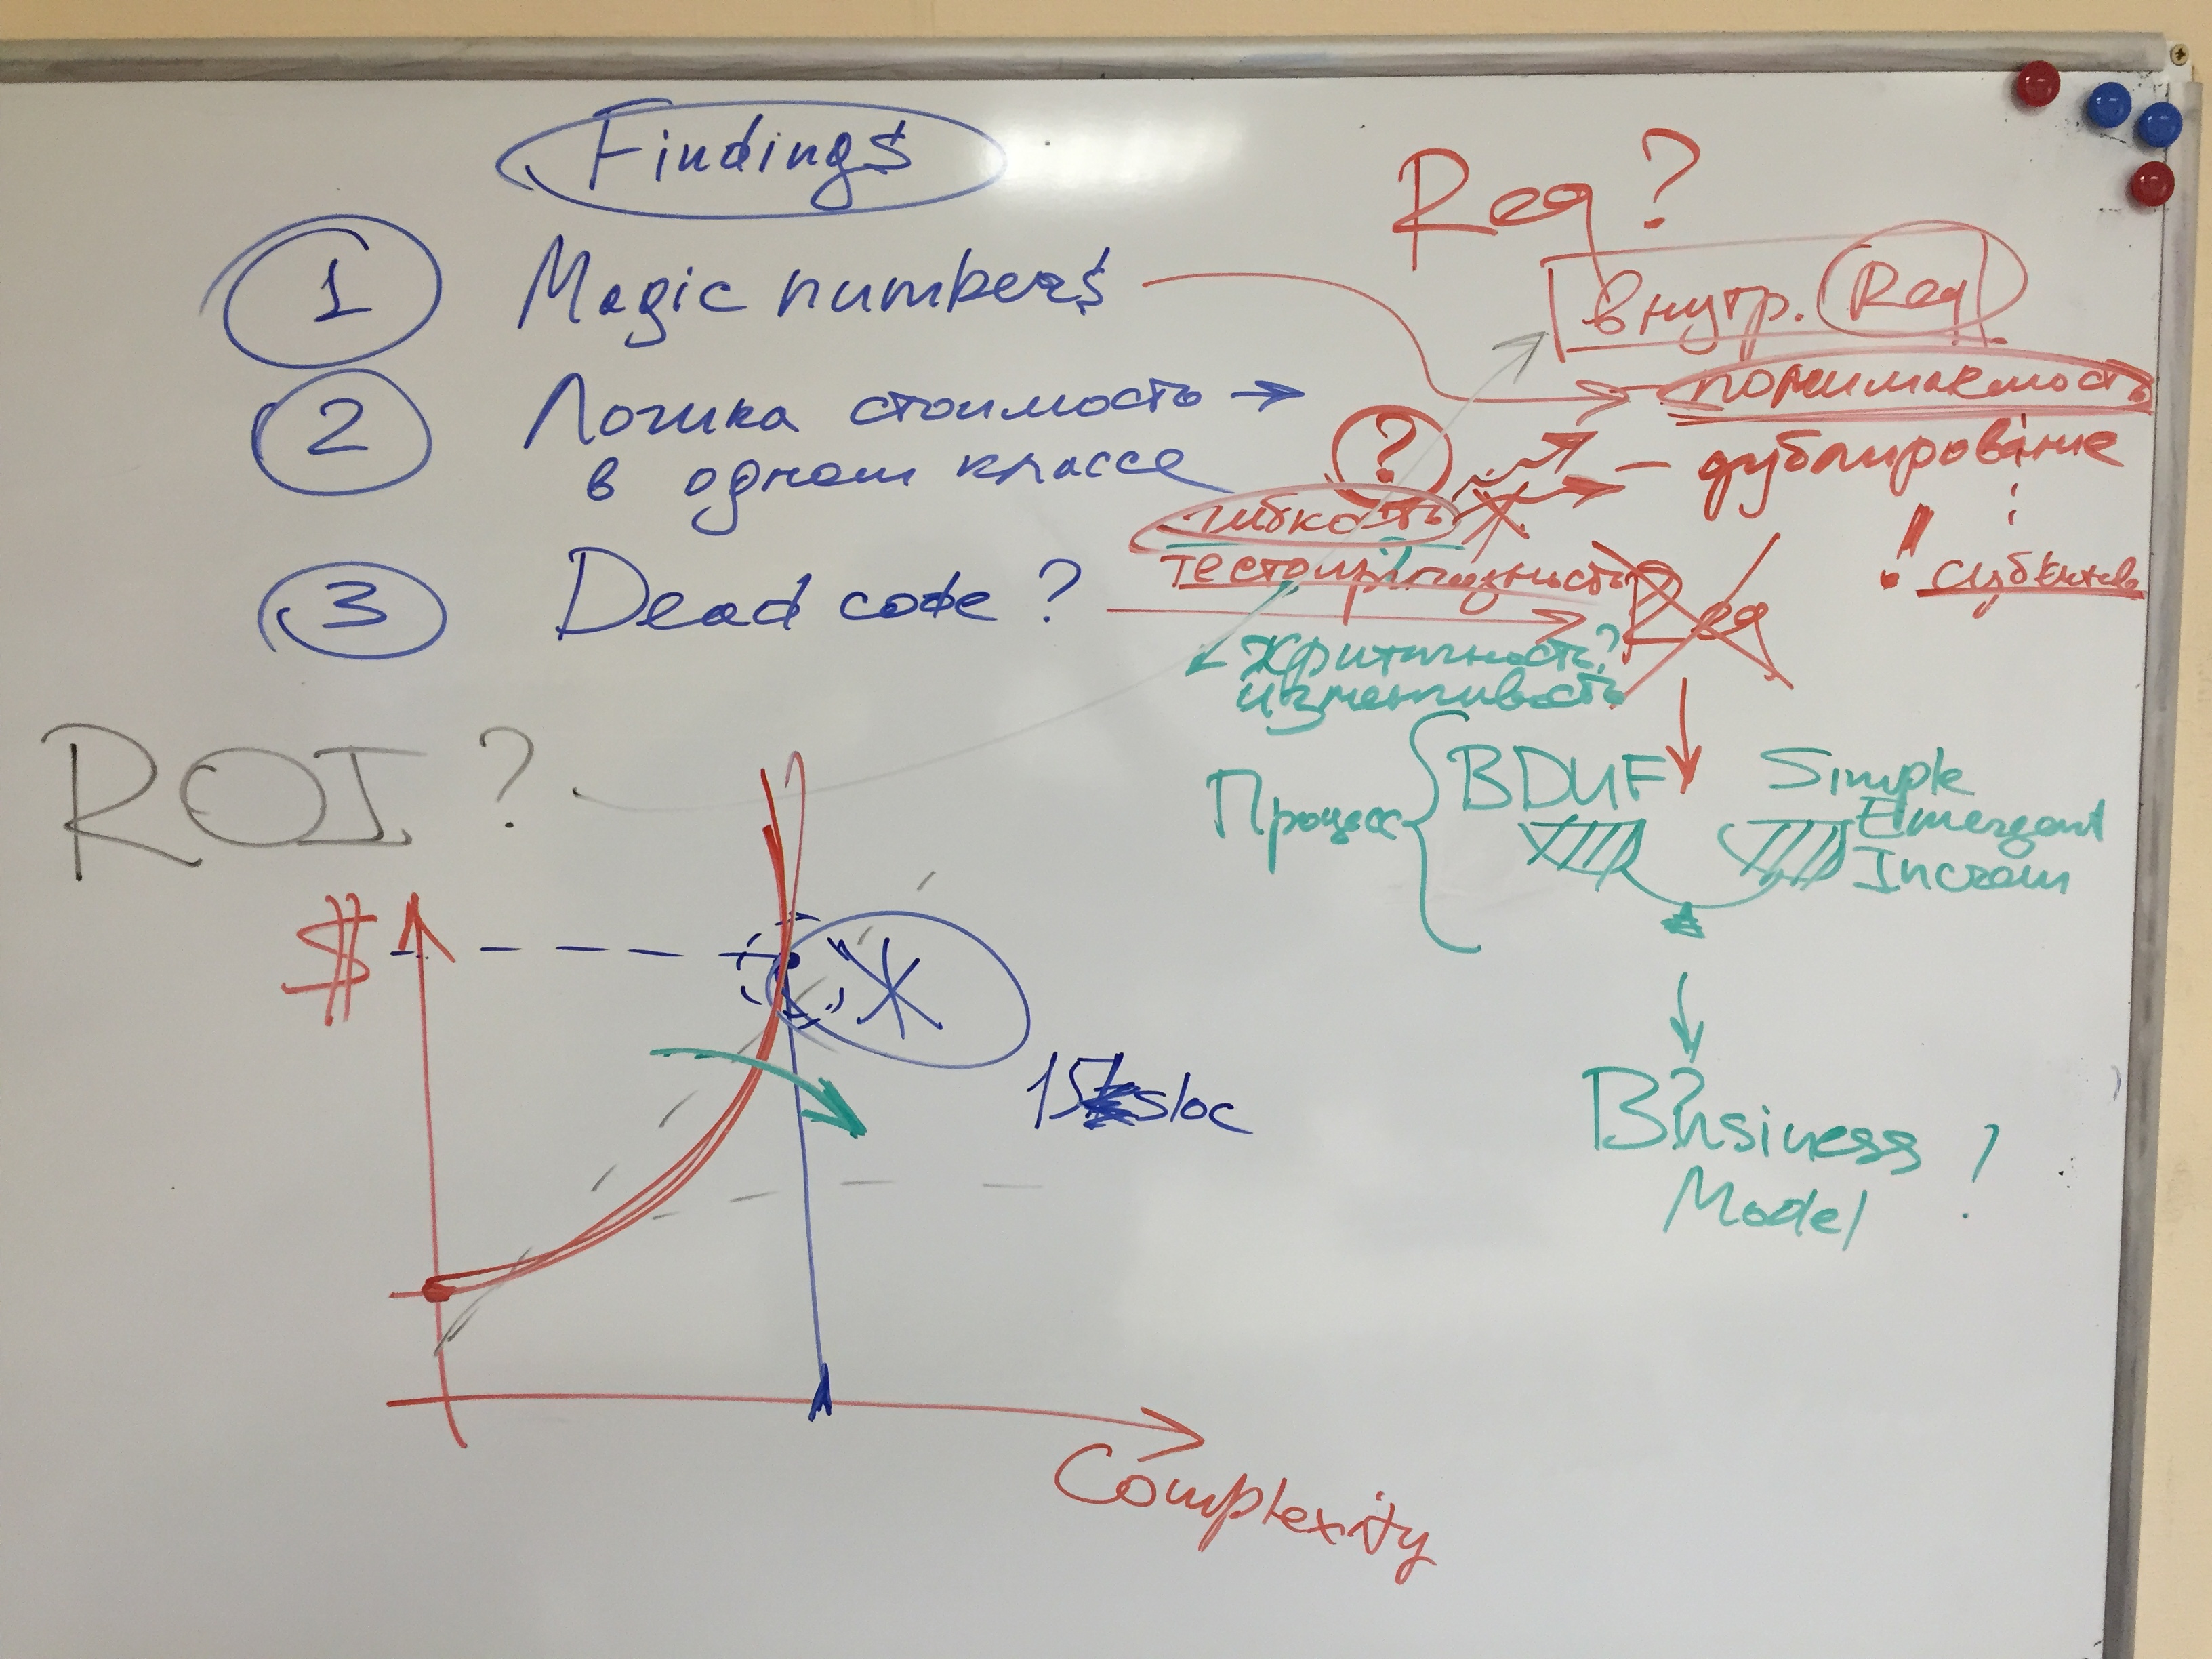 Findings
1 Magic numbers
2 Логика стоимость →
в одном классе
3 Dead code ?
Req ?
внутр. Req
понимаемость
? — дублирование
гибкость
тестопригодность
! субъектив
Req
критичность?
изменчивость
Процесс { BDUF
Simple
Emergent
Increm
?
Business ?
Model
ROI ?
$
15 sloc
Complexity